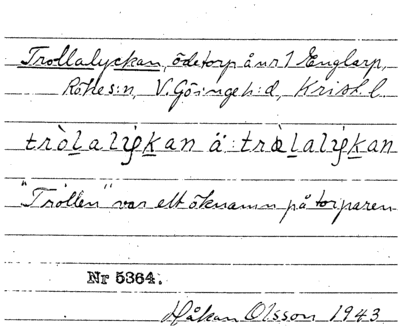 Trollalyckan, ödetorp å nr 1 Englarp,
Röke s:n, V. Göinge h:d, Krist. l.
"Trollen" var ett öknamn på torparen
Nr 5364.
Håkan Olsson 1943